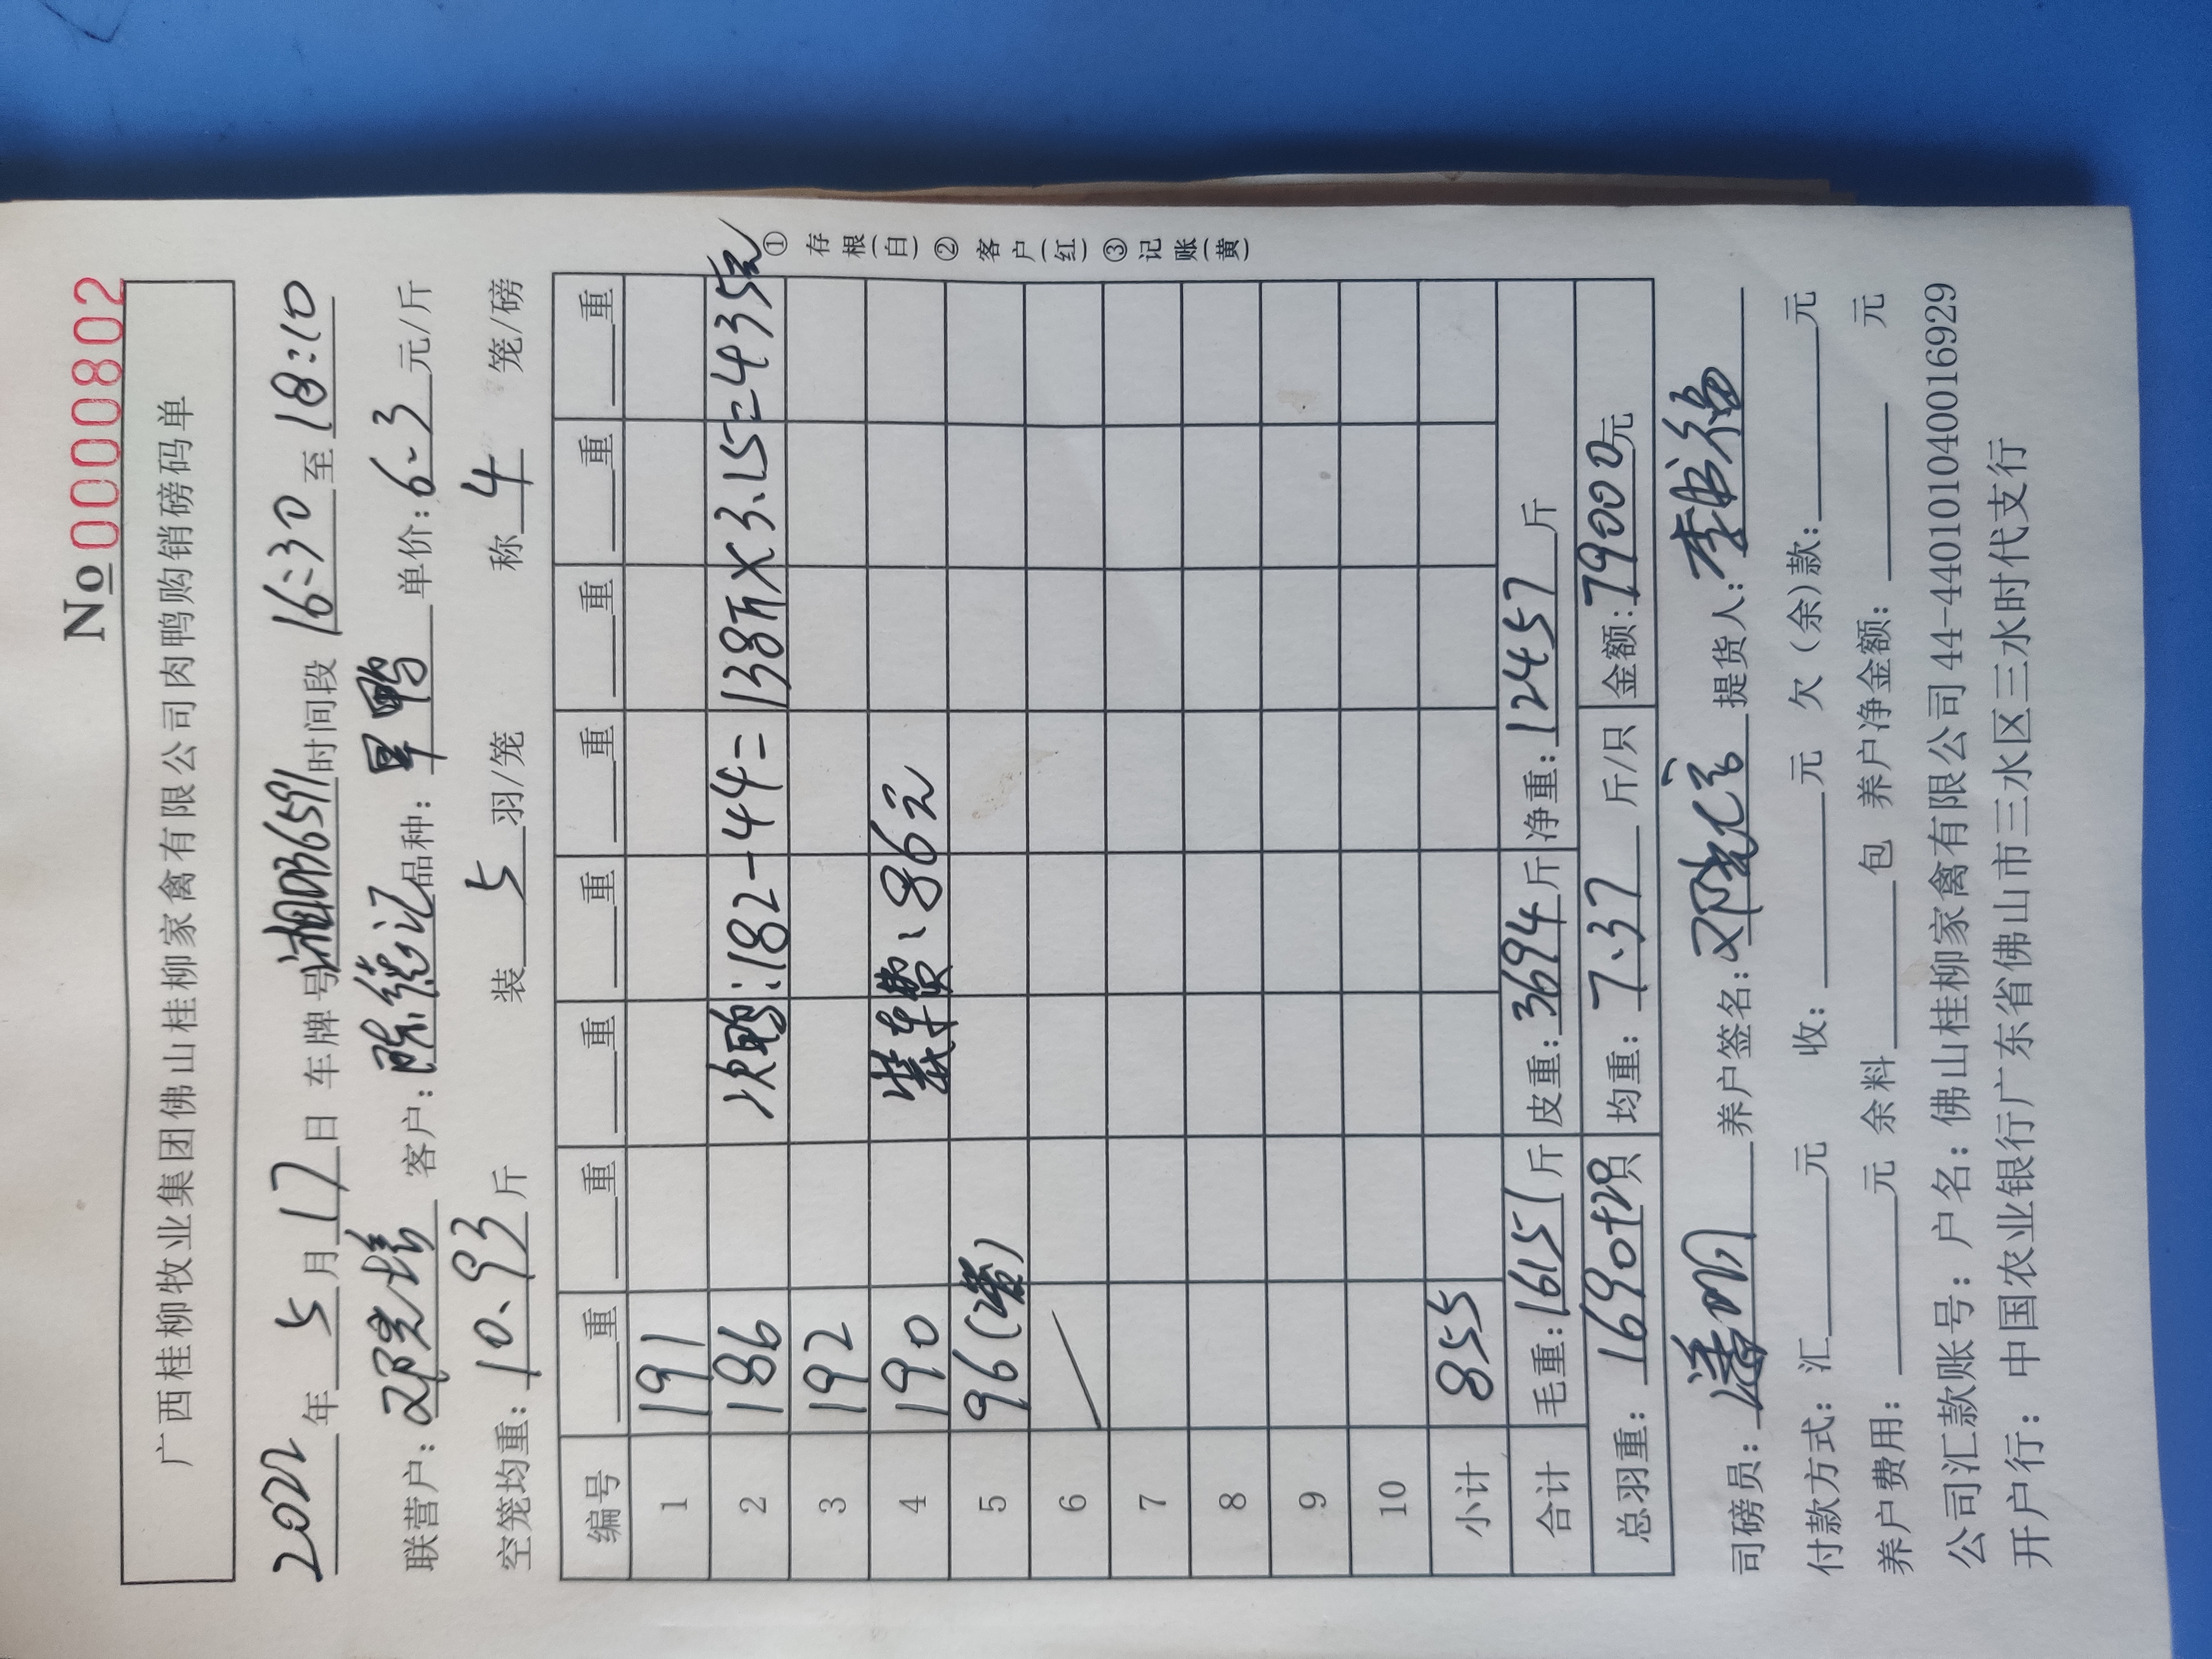 No 0000802
广西桂柳牧业集团佛山桂柳家禽有限公司肉鸭购销磅码单
2022年5月17日 车牌号湘D36591时间段16:30至18:10
联营户:邓光培 客户:陈德记品种:旱鸭 单价:6.3元/斤
空笼均重:10.93斤 装5羽/笼 称4笼/磅
编号 重 重 重 重 重 重 重 重
1 191
2 186 次鸭:182-44=138斤×3.15=435元
3 192
4 190 装车费:86元
5 96(2笼)
6
7
8
9
10
小计 855
合计 毛重:16151斤 皮重:3694斤 净重:12457斤
总羽重:1690只 均重:7.37斤/只 金额:79000元
司磅员:潘明 养户签名: 提货人:
付款方式:汇 元 收: 元 欠(余)款: 元
养户费用: 元 余料 包 养户净金额: 元
公司汇款账号:户名:佛山桂柳家禽有限公司44-440101040016929
开户行:中国农业银行广东省佛山市三水区三水时代支行
①存根(白)②客户(红)③记账(黄)